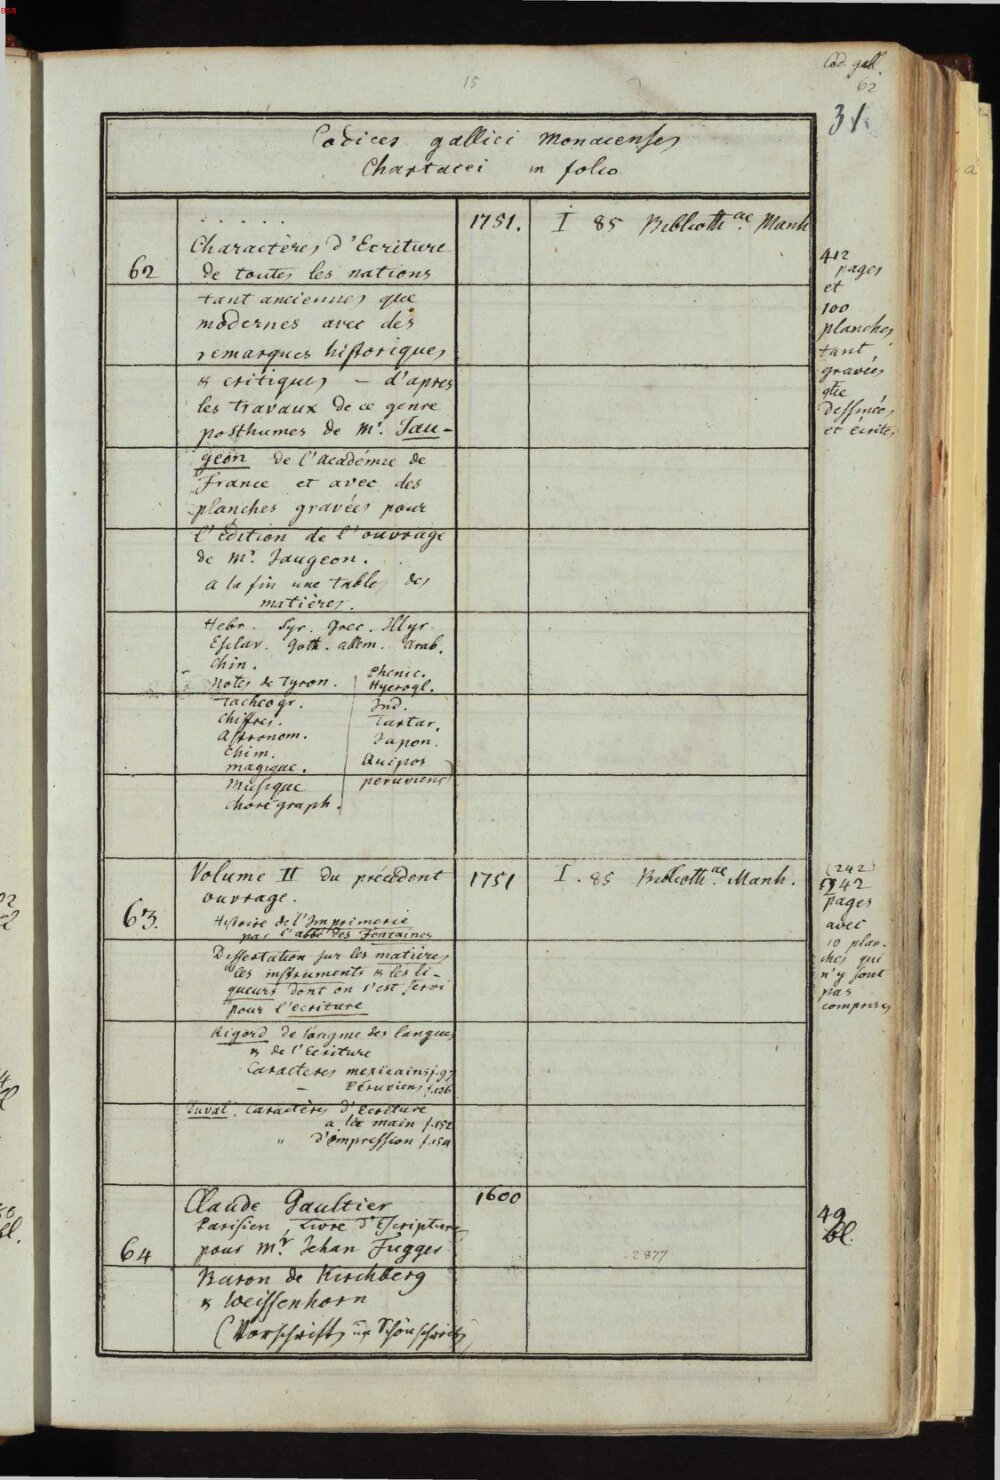 BSB
Cod. gall.
62
15
31
Codices gallici Monacenses
Chartacei in folio
. . . . .
1751. I 85 Biblioth.ae Manh
Charactères d'Ecriture
62
de toutes les nations
tant anciennes que
modernes avec des
remarques historiques
& critiques – d'apres
les travaux de ce genre
posthumes de Mr. Jau-
geon de l'académie de
france et avec des
planches gravées pour
l'édition de l'ouvrage
de Mr. Jaugeon.
a la fin une table des
matières.
Hebr. Syr. Grec. Illyr.
Esclav. Goth. allem. arab.
Chin.
Notes de Tyron.
Tacheogr.
Chiffres.
Astronom.
Chim.
magique.
Musique
choregraph.
Phenic.
Hyerogl.
Ind.
Tartar.
Japon.
Quipos
peruviens
412
pages
et
100
planches
tant
gravées
que
dessinées
et écrites
Volume II du précédent
1751 I. 85 Biblioth.ae Manh.
ouvrage.
63.
Histoire de l'Imprimerie
par l'abbé des Fontaines
Dissertation sur les matieres
les instruments & les li-
queurs dont on s'est servi
pour l'ecriture
Rigord de l'origine des langues
& de l'Ecriture
Caracteres mexicains f. 97
– Péruviens f. 126
Duval. Caractères d'Ecriture
a la main f. 152
" d'impression f. 154
(242)
pages
avec
10 plan-
ches qui
n'y sont
pas
comprises
Claude Gaultier
1600
Parisien, Livre d'Escripture
pour Mr. Jehan Fugger
64
Baron de Kirchberg
& Weissenhorn
(Vorschrift, u. Schönschrift)
2877
49
bl.